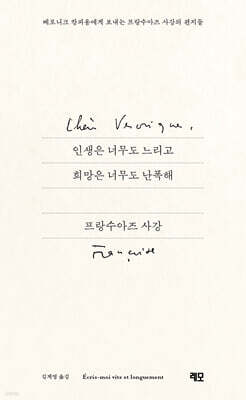 베로니크 캉피옹에게 보내는 프랑수아즈 사강의 편지들
Chère Véronique,
인생은 너무도 느리고
희망은 너무도 난폭해
프랑수아즈 사강
Françoise
김계영 옮김
Écris-moi vite et longuement
레모
yes24